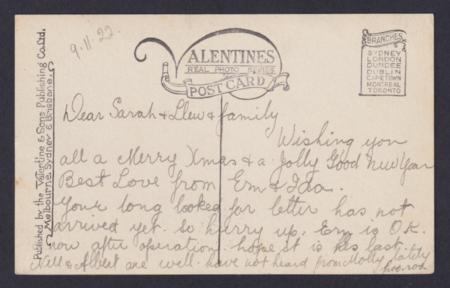 9.11.22
VALENTINES
REAL PHOTO SERIES
POSTCARD
BRANCHES
SYDNEY
LONDON
DUNDEE
DUBLIN
CAPETOWN
MONTREAL
TORONTO
Published by the Valentine & Sons Publishing Co. Ltd.
Melbourne, Sydney & Brisbane.
Dear Sarah & Llew & family
Wishing you
all a Merry Xmas & a Jolly Good new Year
Best Love from Em & Ida.
Your long looked for letter has not
arrived yet. so hurry up. Em is O.K.
now after operation. hope it is his last.
Nell & Albert are well. have not heard from Molly lately